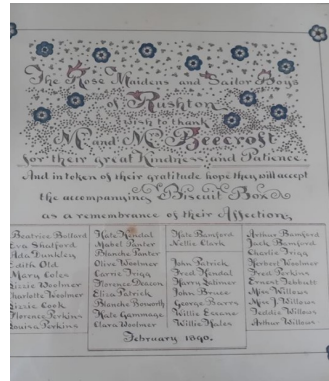 The Rose Maidens and Sailor Boys
of Rushton
wish to thank
Mr and Mrs Beecroft
for their great Kindness and Patience.
And in token of their gratitude hope they will accept
the accompanying Biscuit Box
as a remembrance of their Affection,
Beatrice Bullard
Eva Shatford
Ada Dunkley
Edith Old
Mary Coles
Lizzie Woolmer
Charlotte Woolmer
Lizzie Cook
Florence Perkins
Louisa Perkins
Kate Kendal
Mabel Panter
Blanche Panter
Olive Woolmer
Carrie Frigg
Florence Deacon
Eliza Patrick
Blanche Bosworth
Kate Gammage
Clara Woolmer
Kate Bamford
Nellie Clark
John Patrick
Fred Kendal
Harry Latimer
John Bruce
George Barrs
Willie Essane
Willie Hales
Arthur Bamford
Jack Bamford
Charlie Frigg
Herbert Woolmer
Fred Perkins
Ernest Tebbutt
Miss Willows
Miss J. Willows
Teddie Willows
Arthur Willows
February 1890.